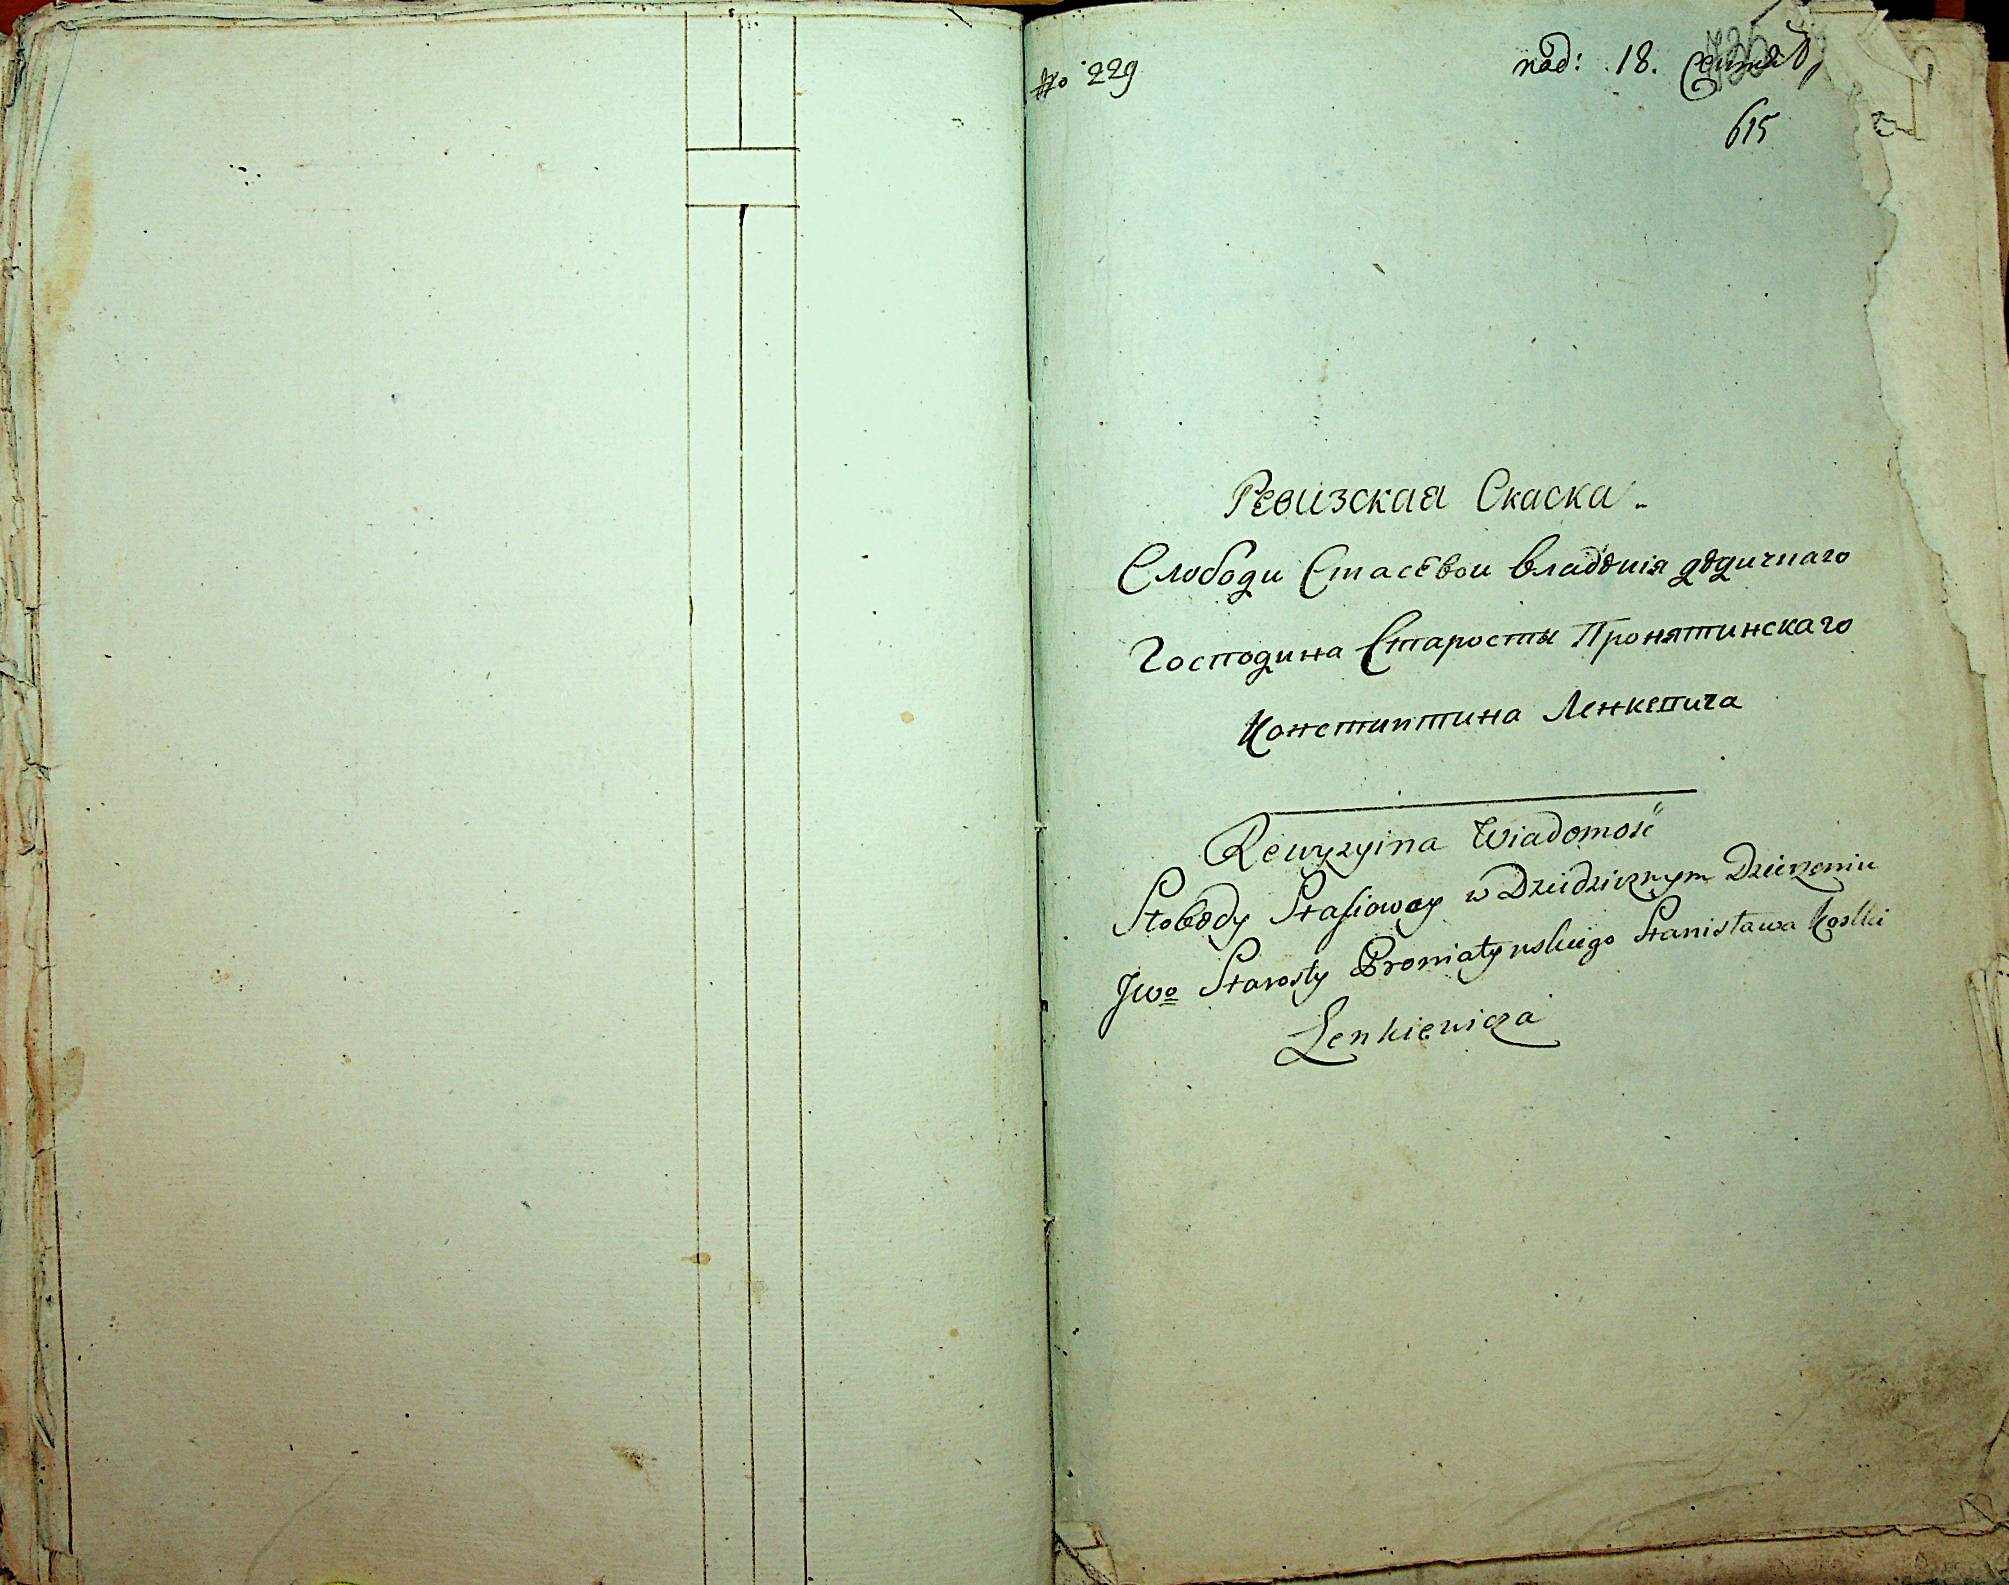 No 229
под: 18. Сентяб
615
Ревизская Скаска
Слободи Стасевои владѣнія дѣдичнаго
Господина Старосты Пронятинскаго
Констиптина Ленкевича
Rewyzyina Wiadomość
Słobody Stasiowey w Dziedzicznym Dzierżeniu
JWo Starosty Proniatynskiego Stanisława Kostki
Lenkiewicza